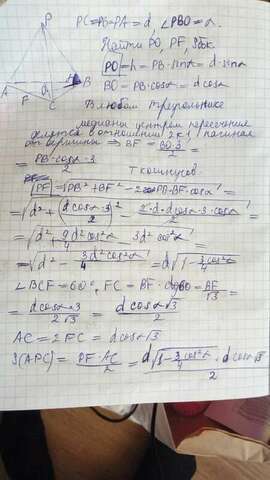 P
A
F
O
C
B
PC=PB=PA=d, ∠PBO=α.
Найти PO, PF, Sбок
PO=h=PB·sinα=d·sinα
BO=PB·cosα=d cosα
В любом треугольнике
медианы центром пересечения
делятся в отношении 2 к 1, начиная
от вершины ⇒ BF = BO·3/2 =
= PB·cosα·3/2
т косинусов
PF = √PB²+BF²-2·PB·BF·cosα =
= √d²+(d cosα·3/2)²-2·d·d cosα·3·cosα/2 =
= √d²+9d²cos²α/4-3d²cos²α =
= √d²-3d²cos²α/4 = d√1-3/4cos²α
∠BCF=60°, FC=BF· =BF/√3 =
= d cosα·3/2√3 = d cosα√3/2
AC=2FC=d cosα√3
S(APC)=PF·AC/2 = d√1-3/4cos²α · d cosα√3/2